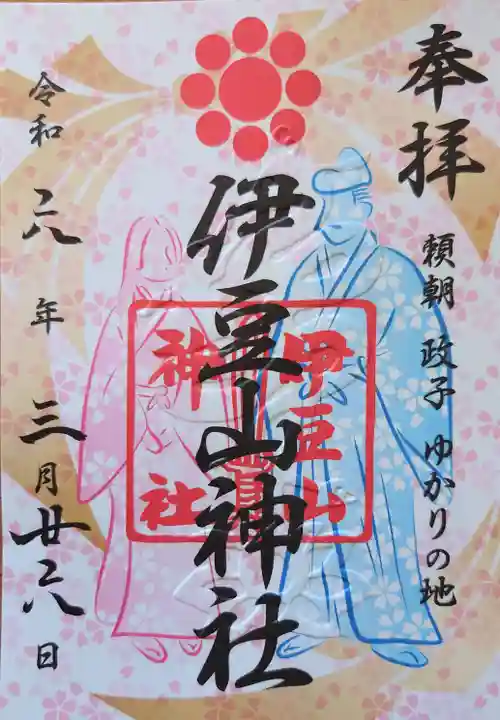 奉拝
頼朝 政子 ゆかりの地
伊豆山神社
伊豆山
神社
令和 六 年 三 月 廿六 日